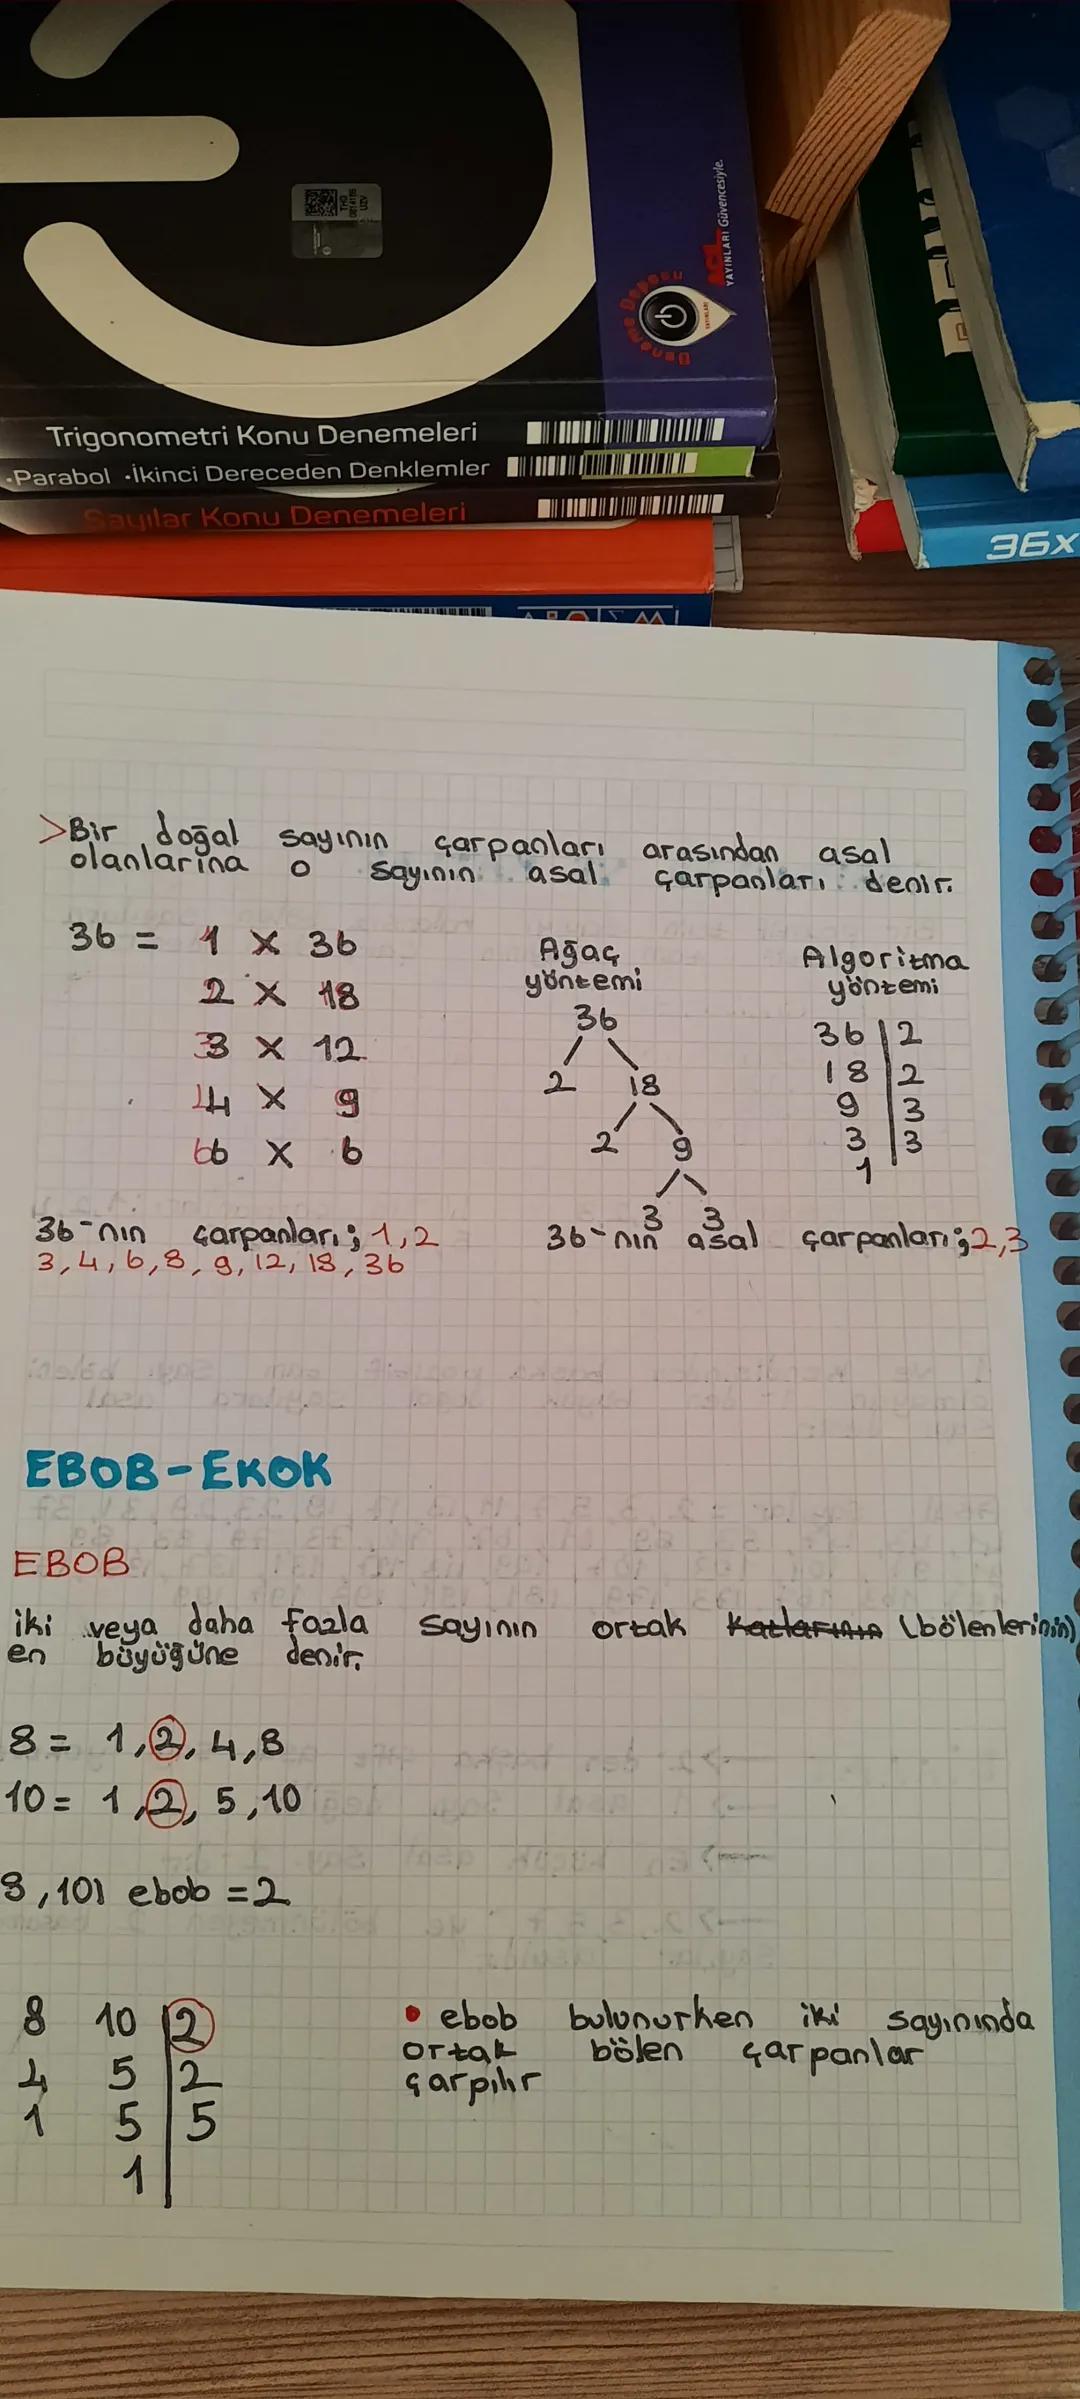 YAYINLARI Güvencesiyle.
Deneme Deposu
Trigonometri Konu Denemeleri
·Parabol ·İkinci Dereceden Denklemler
Sayılar Konu Denemeleri
36x
>Bir doğal sayının çarpanları arasından asal
olanlarına o sayının asal çarpanları denir.
36 = 1 x 36
2 x 18
3 x 12
4 x 9
6 x 6
36-nın çarpanları; 1,2
3,4,6,8,9,12,18,36
Ağaç
yöntemi
36
2 18
2 9
3 3
Algoritma
yöntemi
36 | 2
18 | 2
9 | 3
3 | 3
1
36-nın asal çarpanları;2,3
EBOB-EKOK
EBOB
iki veya daha fazla sayının ortak katlarının (bölenlerinin)
en büyüğüne denir.
8 = 1,2,4,8
10 = 1,2,5,10
8,10) ebob =2
8 10 | 2
4 5 | 2
1 5 | 5
1
• ebob bulunurken iki sayınında
ortak bölen çarpanlar
çarpılır